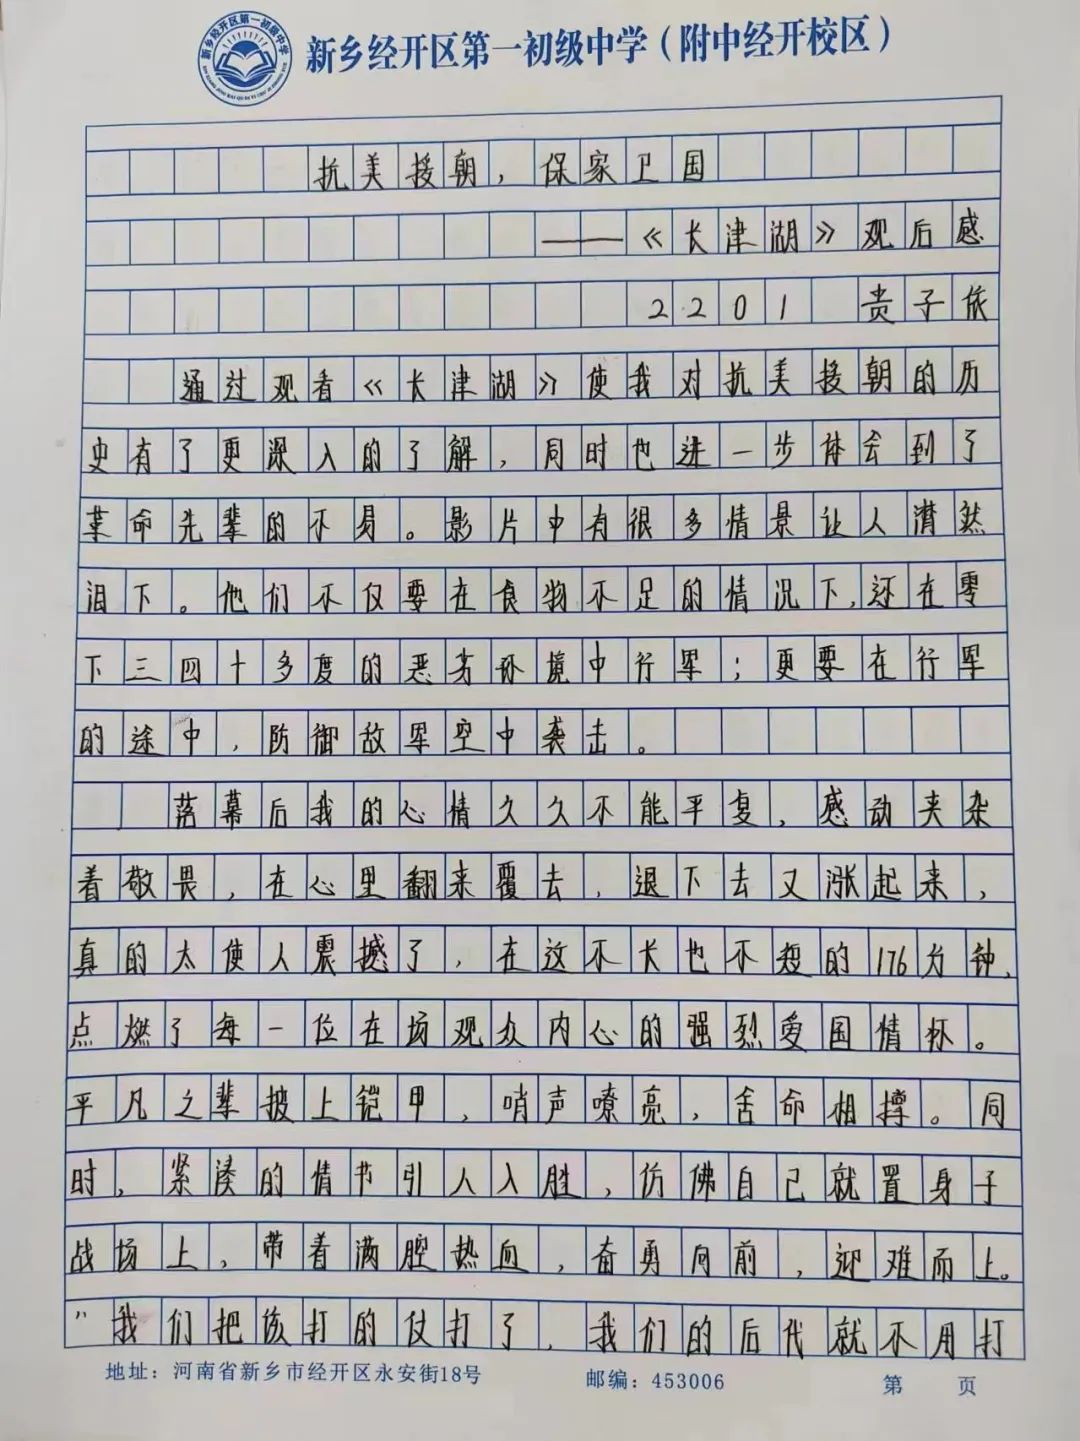 新乡经开区第一初级中学
新乡经开区第一初级中学（附中经开校区）
抗美援朝，保家卫国
——《长津湖》观后感
2201 贵子依
通过观看《长津湖》使我对抗美援朝的历
史有了更深入的了解，同时也进一步体会到了
革命先辈的不易。影片中有很多情景让人潸然
泪下。他们不仅要在食物不足的情况下，还在零
下三四十多度的恶劣环境中行军；更要在行军
的途中，防御敌军空中袭击。
落幕后我的心情久久不能平复，感动夹杂
着敬畏，在心里翻来覆去，退下去又涨起来，
真的太使人震撼了，在这不长也不短的176分钟，
点燃了每一位在场观众内心的强烈爱国情怀。
平凡之辈披上铠甲，哨声嘹亮，舍命相撑。同
时，紧凑的情节引人入胜，仿佛自己就置身于
战场上，带着满腔热血，奋勇向前，迎难而上。
“我们把该打的仗打了，我们的后代就不用打
地址：河南省新乡市经开区永安街18号 邮编：453006 第 页